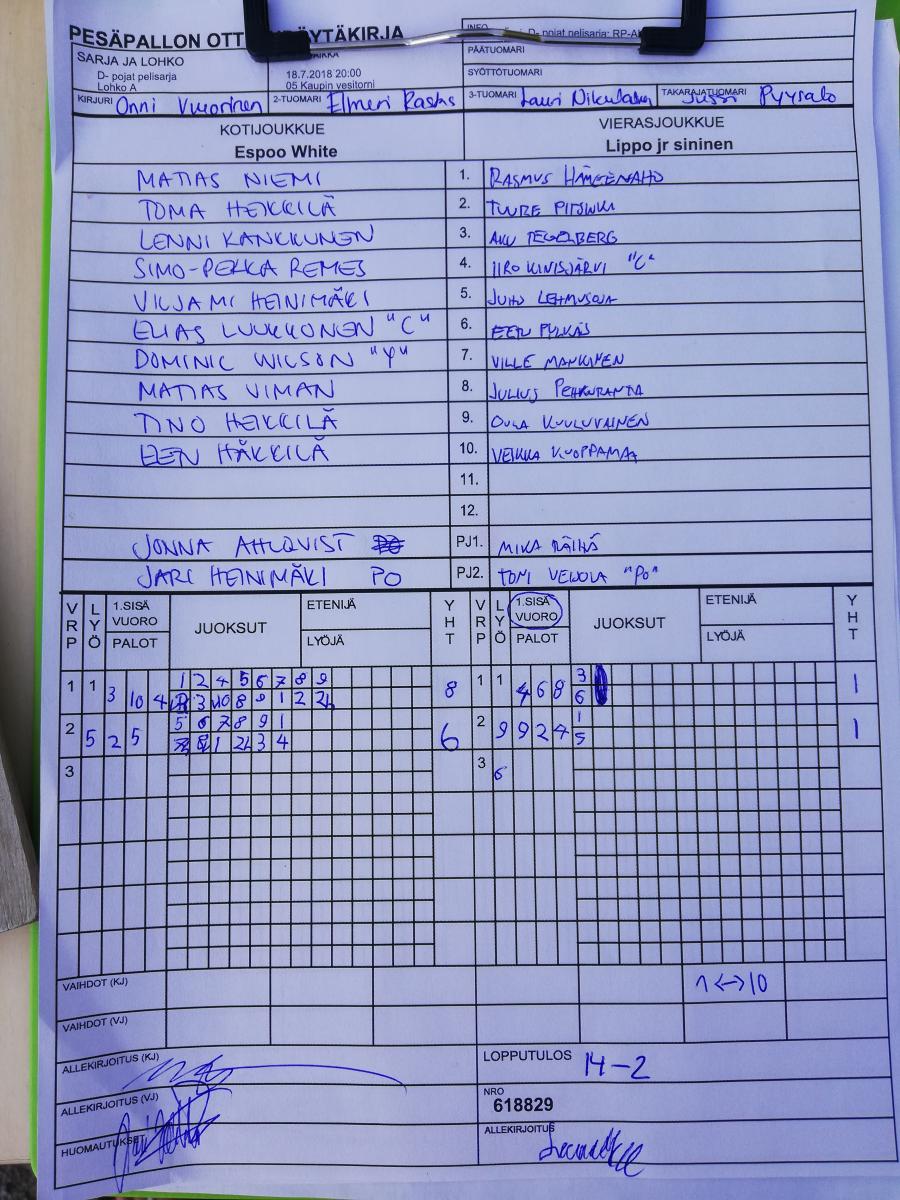 PESÄPALLON OTT
YTÄKIRJA
SARJA JA LOHKO
D- pojat pelisarja
Lohko A
18.7.2018 20:00
05 Kaupin vesitorni
D- pojat pelisarja: RP-
PÄÄTUOMARI
SYÖTTÖTUOMARI
KIRJURI Onni Vuorinen 2-TUOMARI Elmeri Rastas 3-TUOMARI Lauri TAKARAJATUOMARI Jussi Pyysalo
KOTIJOUKKUE VIERASJOUKKUE
Espoo White Lippo jr sininen
MATIAS NIEMI 1. RASMUS HÄMEENAHO
TOMA HEIKKILÄ 2. TUURE
LENNI KANKKUNEN 3. AKU TEGELBERG
SIMO-PEKKA REMES 4. IIRO KINISJÄRVI "C"
VILJAMI HEINIMÄKI 5. JUHO
ELIAS LUUKKONEN "C" 6. EEN PYLKÄS
DOMINIC WILSON "Y" 7. VILLE MANKINEN
MATIAS VIMAN 8. JULIUS PEHKURANTA
TINO HEIKKILÄ 9. OULA KUULUVAINEN
EEN HÄKKILÄ 10. VEIKKA KUOPPAMAA
11.
12.
JONNA AHLQVIST PJ1. MIKA RÄIHÄ
JARI HEINIMÄKI PO PJ2. TOMI "PO"
VRP LYÖ 1.SISÄ VUORO PALOT JUOKSUT ETENIJÄ LYÖJÄ YHT VRP LYÖ 1.SISÄ VUORO PALOT JUOKSUT ETENIJÄ LYÖJÄ YHT
1 1 3 10 4 1 2 4 5 6 7 8 9 8 1 1 4 6 8 3 1
3 10 8 9 1 2 2 6
2 5 2 5 5 6 7 8 9 1 6 2 9 9 2 4 1 1
1 2 3 4 5
3 3 6
VAIHDOT (KJ) 1<->10
VAIHDOT (VJ)
ALLEKIRJOITUS (KJ) LOPPUTULOS 14-2
ALLEKIRJOITUS (VJ) NRO
618829
HUOMAUTUKSE ALLEKIRJOITUS